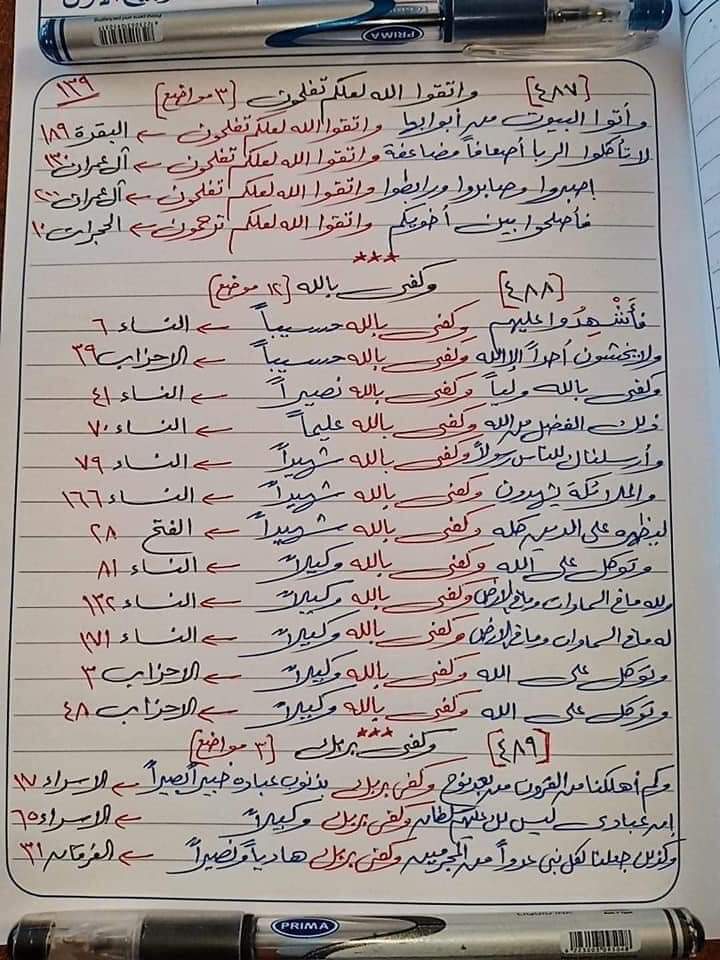 PRIMA
١٣٩
[٤٨٧] واتقوا الله لعلكم تفلحون [٣ مواضع]
وأتوا البيوت من أبوابها واتقوا الله لعلكم تفلحون ← البقرة ١٨٩
لا تأكلوا الربا أضعافاً مضاعفة واتقوا الله لعلكم تفلحون ← آل عمران ١٣٠
اصبروا وصابروا ورابطوا واتقوا الله لعلكم تفلحون ← آل عمران ٢٠٠
فأصلحوا بين أخويكم واتقوا الله لعلكم ترحمون ← الحجرات ١٠
***
[٤٨٨] وكفى بالله [١٢ موضع]
فأَشْهِدُوا عليهم وكفى بالله حسيباً ← النساء ٦
ولا يخشون أحداً إلا الله وكفى بالله حسيباً ← الاحزاب ٣٩
وكفى بالله ولياً وكفى بالله نصيراً ← النساء ٤١
ذلك الفضل من الله وكفى بالله عليماً ← النساء ٧٠
وأرسلناك للناس رسولاً وكفى بالله شهيداً ← النساء ٧٩
والملائكة يشهدون وكفى بالله شهيداً ← النساء ١٦٦
ليظهره على الدين كله وكفى بالله شهيداً ← الفتح ٢٨
وتوكل على الله وكفى بالله وكيلاً ← النساء ٨١
ولله ما في السماوات وما في الارض وكفى بالله وكيلاً ← النساء ١٣٢
له ما في السماوات وما في الارض وكفى بالله وكيلاً ← النساء ١٧١
وتوكل على الله وكفى بالله وكيلاً ← الاحزاب ٣
وتوكل على الله وكفى بالله وكيلاً ← الاحزاب ٤٨
***
[٤٨٩] وكفى بربك [٣ مواضع]
وكم أهلكنا من القرون من بعد نوح وكفى بربك بذنوب عباده خبيراً بصيراً ← الاسراء ١٧
إن عبادي ليس لك عليهم سلطان وكفى بربك وكيلاً ← الاسراء ٦٥
وكذلك جعلنا لكل نبي عدواً من المجرمين وكفى بربك هادياً ونصيراً ← الفرقان ٣١
PRIMA